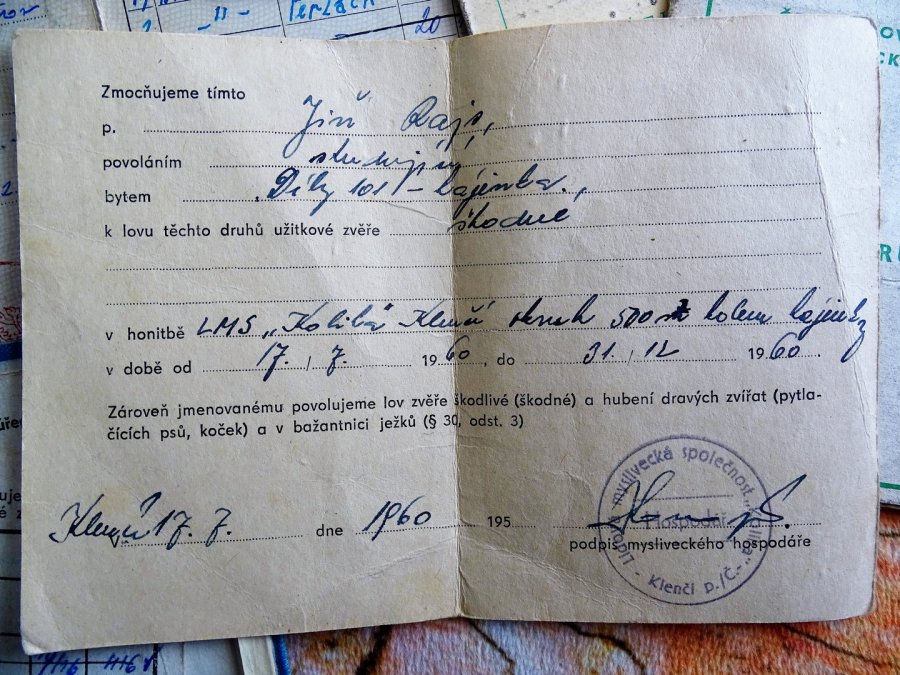 20
Zmocňujeme tímto
p. Jiří Rajs,
povoláním studující,
bytem Díly 101 – hájenka,
k lovu těchto druhů užitkové zvěře škodné
v honitbě LMS „Koliba" Klenčí okruh 500 m kolem hájenky
v době od 17. / 7. 1960, do 31. / 12 1960.
Zároveň jmenovanému povolujeme lov zvěře škodlivé (škodné) a hubení dravých zvířat (pytla-
čících psů, koček) a v bažantnici ježků (§ 30, odst. 3)
V Klenčí 17. 7. dne 1960 195
podpis mysliveckého hospodáře
Lidová myslivecká společnost „Koliba"
Hospodář
- Klenčí p./Č.-